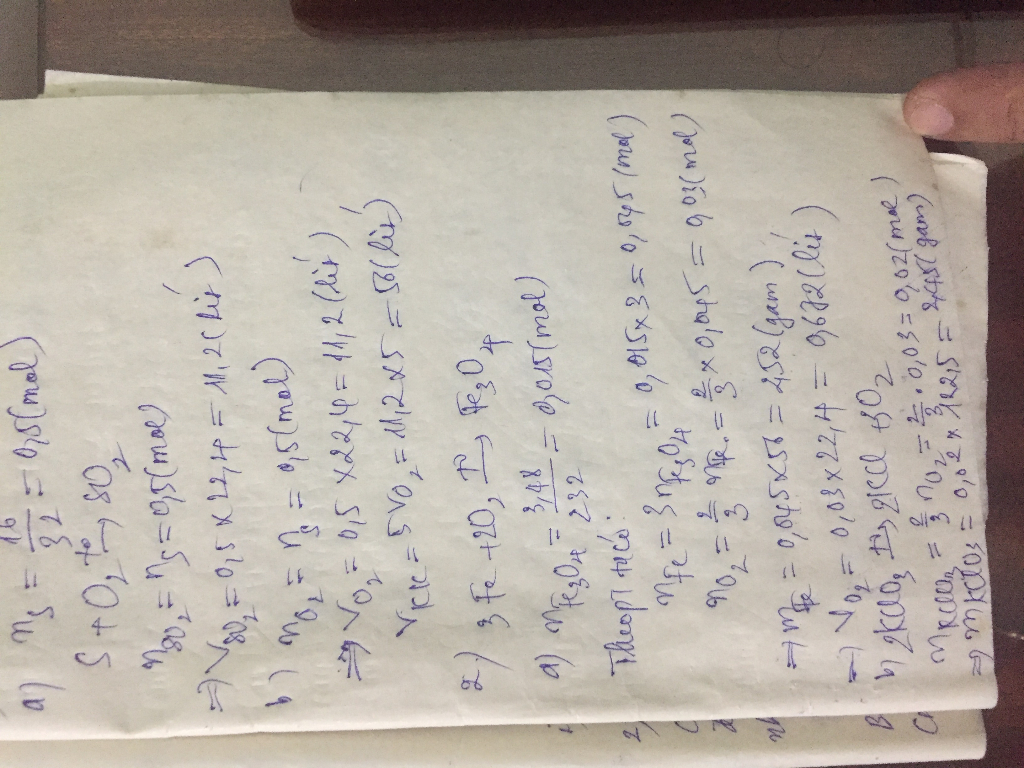 a) nS = 16/32 = 0,5 (mol)
S + O2 t°→ SO2
nSO2 = nS = 0,5 (mol)
⇒ VSO2 = 0,5 x 22,4 = 11,2 (lít)
b) nO2 = nS = 0,5 (mol)
⇒ VO2 = 0,5 x 22,4 = 11,2 (lít)
VKK = 5VO2 = 11,2 x 5 = 56 (lít)
2) 3Fe + 2O2 t°→ Fe3O4
a) nFe3O4 = 3,48/232 = 0,015 (mol)
Theo pt có:
nFe = 3nFe3O4 = 0,015 x 3 = 0,045 (mol)
nO2 = 2/3 nFe = 2/3 x 0,045 = 0,03 (mol)
⇒ mFe = 0,045 x 56 = 2,52 (gam)
⇒ VO2 = 0,03 x 22,4 = 0,672 (lít)
b) 2KClO3 t°→ 2KCl + 3O2
nKClO3 = 2/3 nO2 = 2/3 . 0,03 = 0,02 (mol)
⇒ mKClO3 = 0,02 x 122,5 = 2,45 (gam)